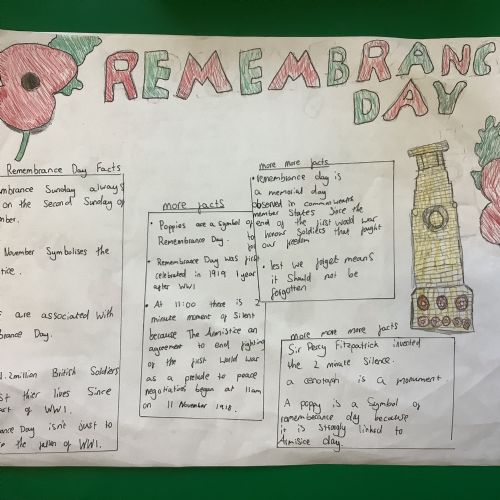 REMEMBRANC
DAY
Remembrance Day Facts
mbrance Sunday always
on the Second Sunday of
mber.
November Symbolises the
tice.
are associated with
brance Day.
.2million British Soldiers
st thier lives Since
art of WW1.
rance Day isn't just to
the fallen of WW1.
more facts
• Poppies are a Symbol of
Remembrance Day.
• Remembrance Day was first
celebrated in 1919 1 year
after WW1
• At 11:00 there is 2
minute moment of Silent
because The Armistice an
agreement to end fighting
of the first World War
as a prelude to peace
negotiations began at 11am
on 11 November 1918.
more more facts
• remembrance day is
a memorial day
observed in commonwealth
member States Since the
end of the first world war
to honour Soldiers that fought
for our freedom
• lest we forget means
it Should not be
forgotten
more more more facts
Sir Percy Fitzpatrick invented
the 2 minute Silence.
a cenotaph is a monument
A poppy is a Symbol of
rememberance day because
it is strongly linked to
Armisice day